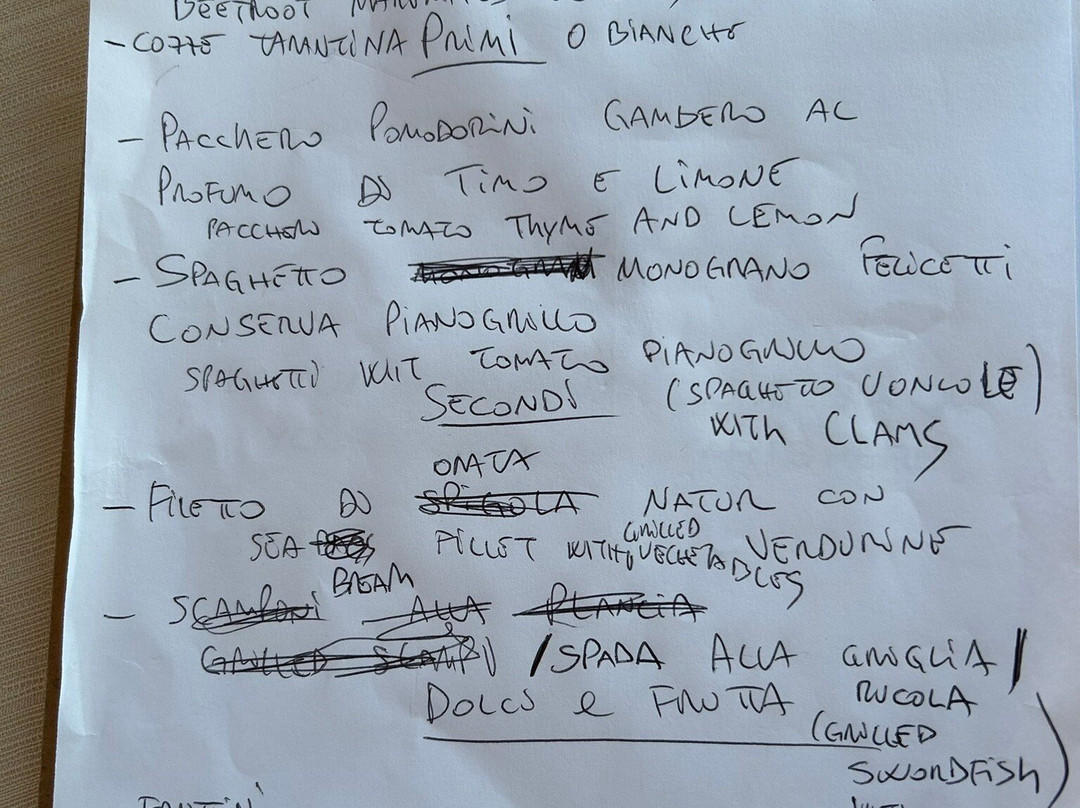 BEETROOT
- COZZE TARANTINA PRIMI O BIANCHE
- PACCHERO POMODORINI GAMBERO AL
PROFUMO DI TIMO E LIMONE
PACCHERO TOMATO THYME AND LEMON
- SPAGHETTO MONOGRANO FELICETTI
CONSERVA PIANOGRILLO
SPAGHETTI WIT TOMATO PIANOGRILLO
SECONDI (SPAGHETTO VONGOLE)
WITH CLAMS
ORATA
- FILETTO DI SPIGOLA NATUR CON
VERDURINE
SEA BREAM FILLET WITH GRILLED VEGHETABLES
- SCAMPONI ALLA PLANCIA
GRILLED SCAMPI / SPADA ALLA GRIGLIA /
DOLCI e FRUTTA RUCOLA
(GRILLED
SWORDFISH)